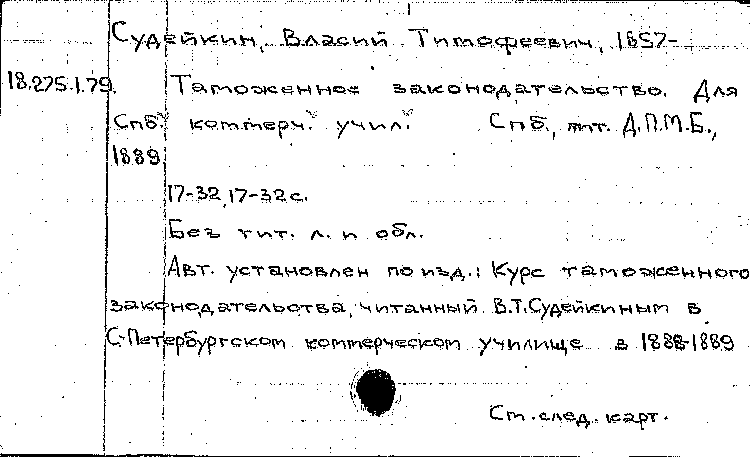 Судейкин, Власий Тимофеевич, 1857-
18.275.1.79. Таможенное законодательство. Для
Спб. коммерч. учил. Спб., тит. Д.П.М.Б.,
1889.
17-32, 17-32 с.
Без тит. л. и обл.
Авт. установлен по изд.: Курс таможенного
законодательства, читанный В.Т.Судейкиным в
С-Петербургском коммерческом училище в 1888-1889
См. след. карт.